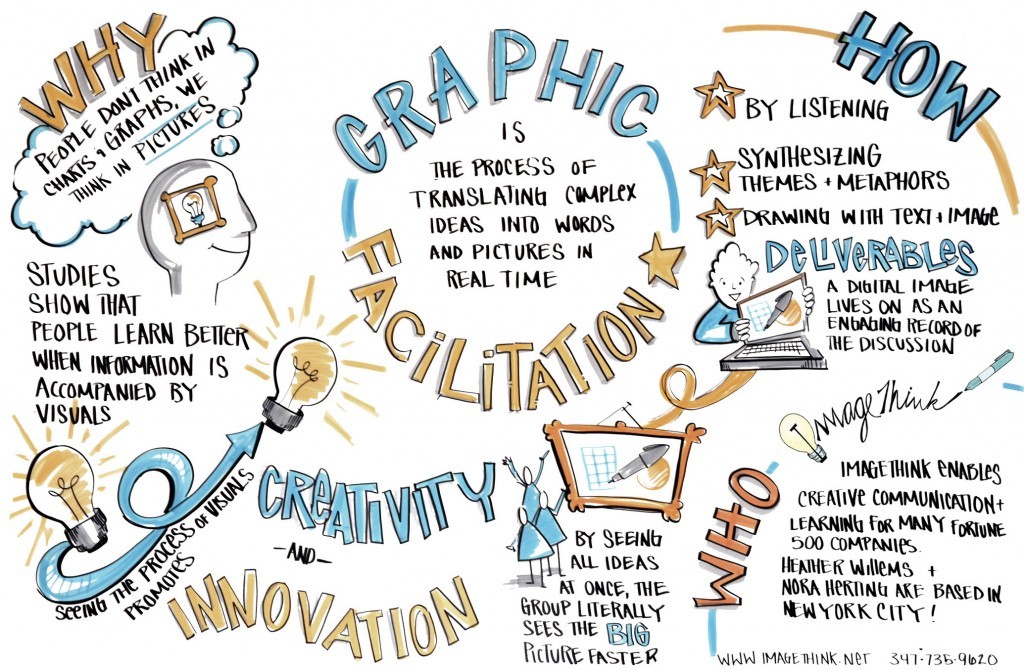 WHY
PEOPLE DON'T THINK IN
CHARTS & GRAPHS, WE
THINK IN PICTURES
STUDIES
SHOW THAT
PEOPLE LEARN BETTER
WHEN INFORMATION IS
ACCOMPANIED BY
VISUALS
SEEING THE PROCESS OF VISUALS
PROMOTES
CREATIVITY
-AND-
INNOVATION
GRAPHIC
IS
THE PROCESS OF
TRANSLATING COMPLEX
IDEAS INTO WORDS
AND PICTURES IN
REAL TIME
FACILITATION
BY SEEING
ALL IDEAS
AT ONCE, THE
GROUP LITERALLY
SEES THE BIG
PICTURE FASTER
HOW
BY LISTENING
SYNTHESIZING
THEMES + METAPHORS
DRAWING WITH TEXT + IMAGE
DELIVERABLES
A DIGITAL IMAGE
LIVES ON AS AN
ENGAGING RECORD OF
THE DISCUSSION
ImageThink
WHO
IMAGETHINK ENABLES
CREATIVE COMMUNICATION +
LEARNING FOR MANY FORTUNE
500 COMPANIES.
HEATHER WILLEMS +
NORA HERTING ARE BASED IN
NEW YORK CITY!
WWW.IMAGETHINK.NET 347-735-9620